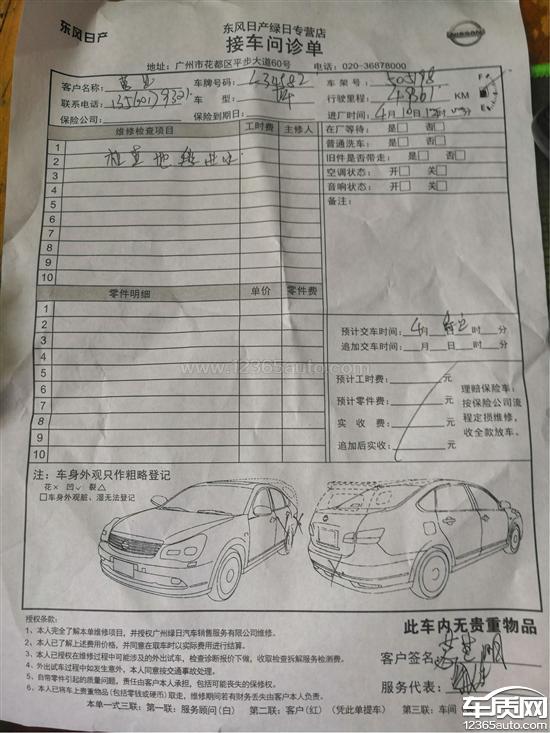 东风日产
东风日产绿日专营店
NISSAN
接车问诊单
地址：广州市花都区平步大道60号 电话：020-36878000
客户名称： 车牌号码： 车架号：505198
联系电话： 车型： 行驶里程： KM
保险公司： 保险到期日： 进厂时间：4月10日 时 分
F
E
维修检查项目 工时费 主修人
在厂等待： 是□ 否□
1
普通洗车： 是□ 否□
2 检查地毯进水
旧件是否带走：是□ 否□
3
空调状态： 开□ 关□
4
音响状态： 开□ 关□
5
备注：
6
7
8
9
10
零件明细 单价 零件费
1
2
预计交车时间：4月 日 时 分
3
追加交车时间： 月 日 时 分
4
www.12365auto.com
5
预计工时费： 元
理赔保险车：
6
预计零件费： 元
按保险公司流
7
实收费： 元
程定损维修，
8
追加后实收： 元
收全款放车。
9
10
注：车身外观只作粗略登记
花× 凹√ 裂△
□车身外观脏、湿无法登记
授权条款：
1、本人完全了解本单维修项目，并授权广州绿日汽车销售服务有限公司维修。
2、本人已了解上述费用价格，并同意在取车时以实际费用进行结算。
3、本人已授权在维修过程中可能涉及的外出试车，检查诊断报价下做，收取检查拆解服务检测费。
4、外出试车过程中如发生意外，本人同意按交通事故处理。
5、自带零件引起的质量问题，责任由客户本人承担，包括可能丧失的保修权。
6、本人已将车上贵重物品（包括零钱或硬币）取走，维修期间若有财务丢失由客户本人负责。
此车内无贵重物品
客户签名：
服务代表：
本单一式三联：第一联：服务顾问（白） 第二联：客户（红）（凭此单提车） 第三联：车间
车质网
12365auto.com